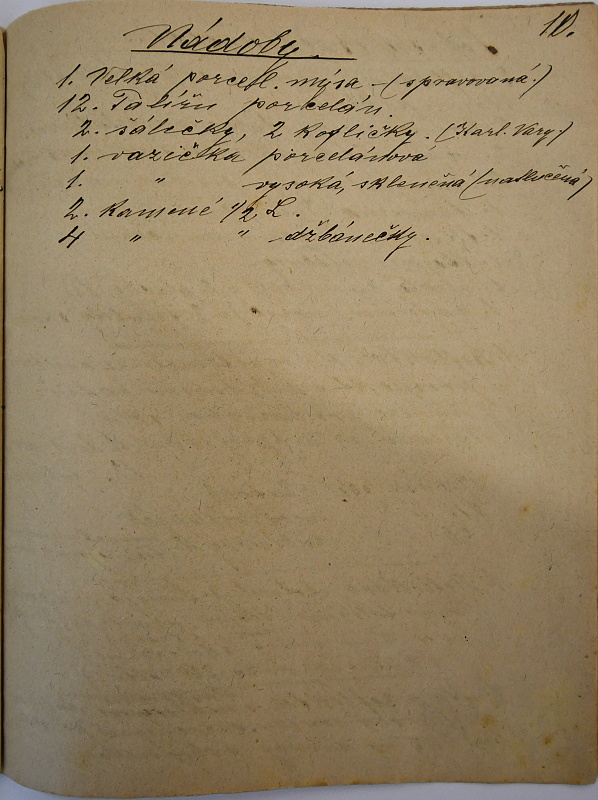 10.
Nádoby.
1. Velká porcel. mýsa - (spravovaná.)
12. Talířů porcelán.
2. šáličky, 2 koflíčky. (Karl. Vary.)
1. vazička porcelánová
1. " vysoká, skleněná (natlučená)
2. Kamené 1/2 L.
4 " " džbánečky.